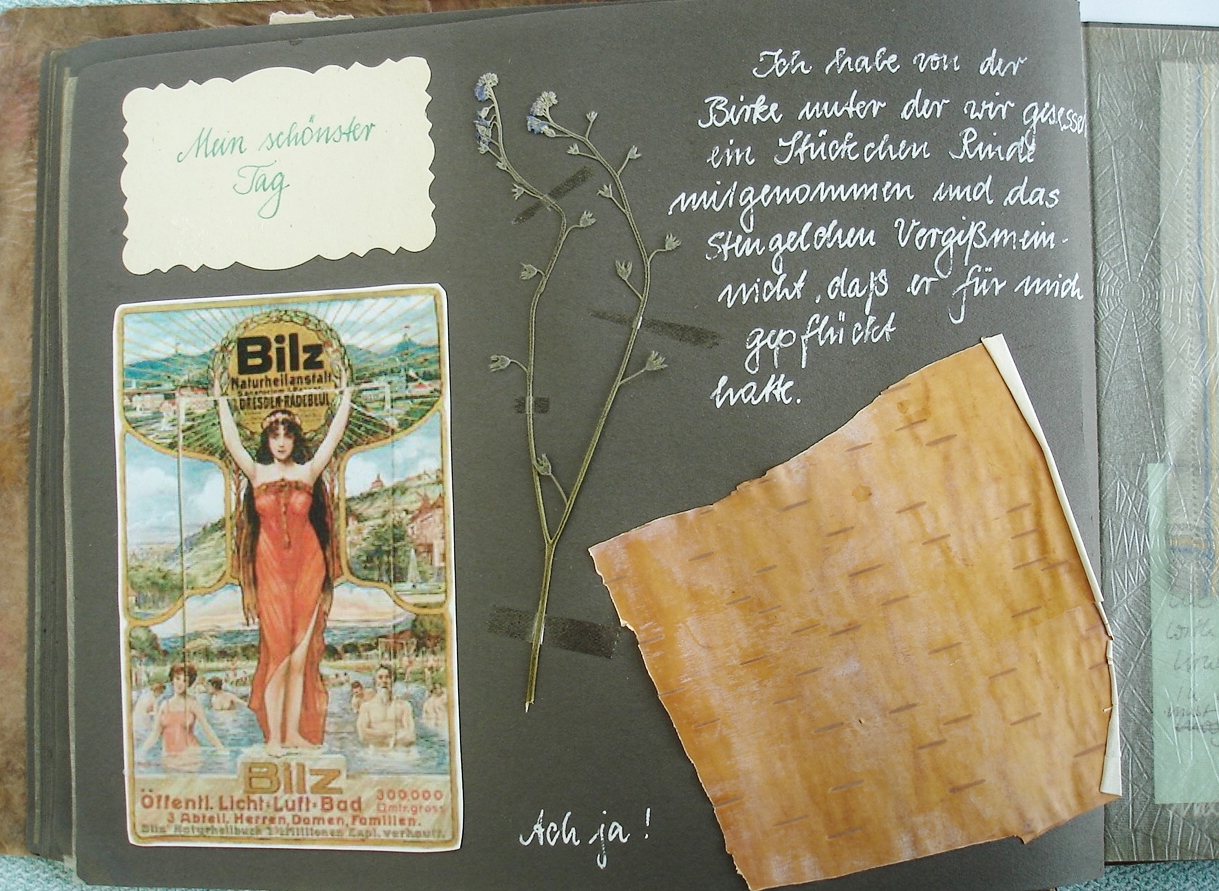 Mein schönster
Tag
Ich habe von der
Birke unter der wir gesessen
ein Stückchen Rinde
mitgenommen und das
Stengelchen Vergißmein-
nicht, daß er für mich
gepflückt
hatte.
Bilz
Naturheilanstalt
DRESDEN-RADEBEUL
Bilz
Öffentl. Licht-Luft-Bad
300,000
Qmtr. gross
3 Abteil. Herren, Damen, Familien.
Bilz' Naturheilbuch 2 Millionen Expl. verkauft.
Ach ja!